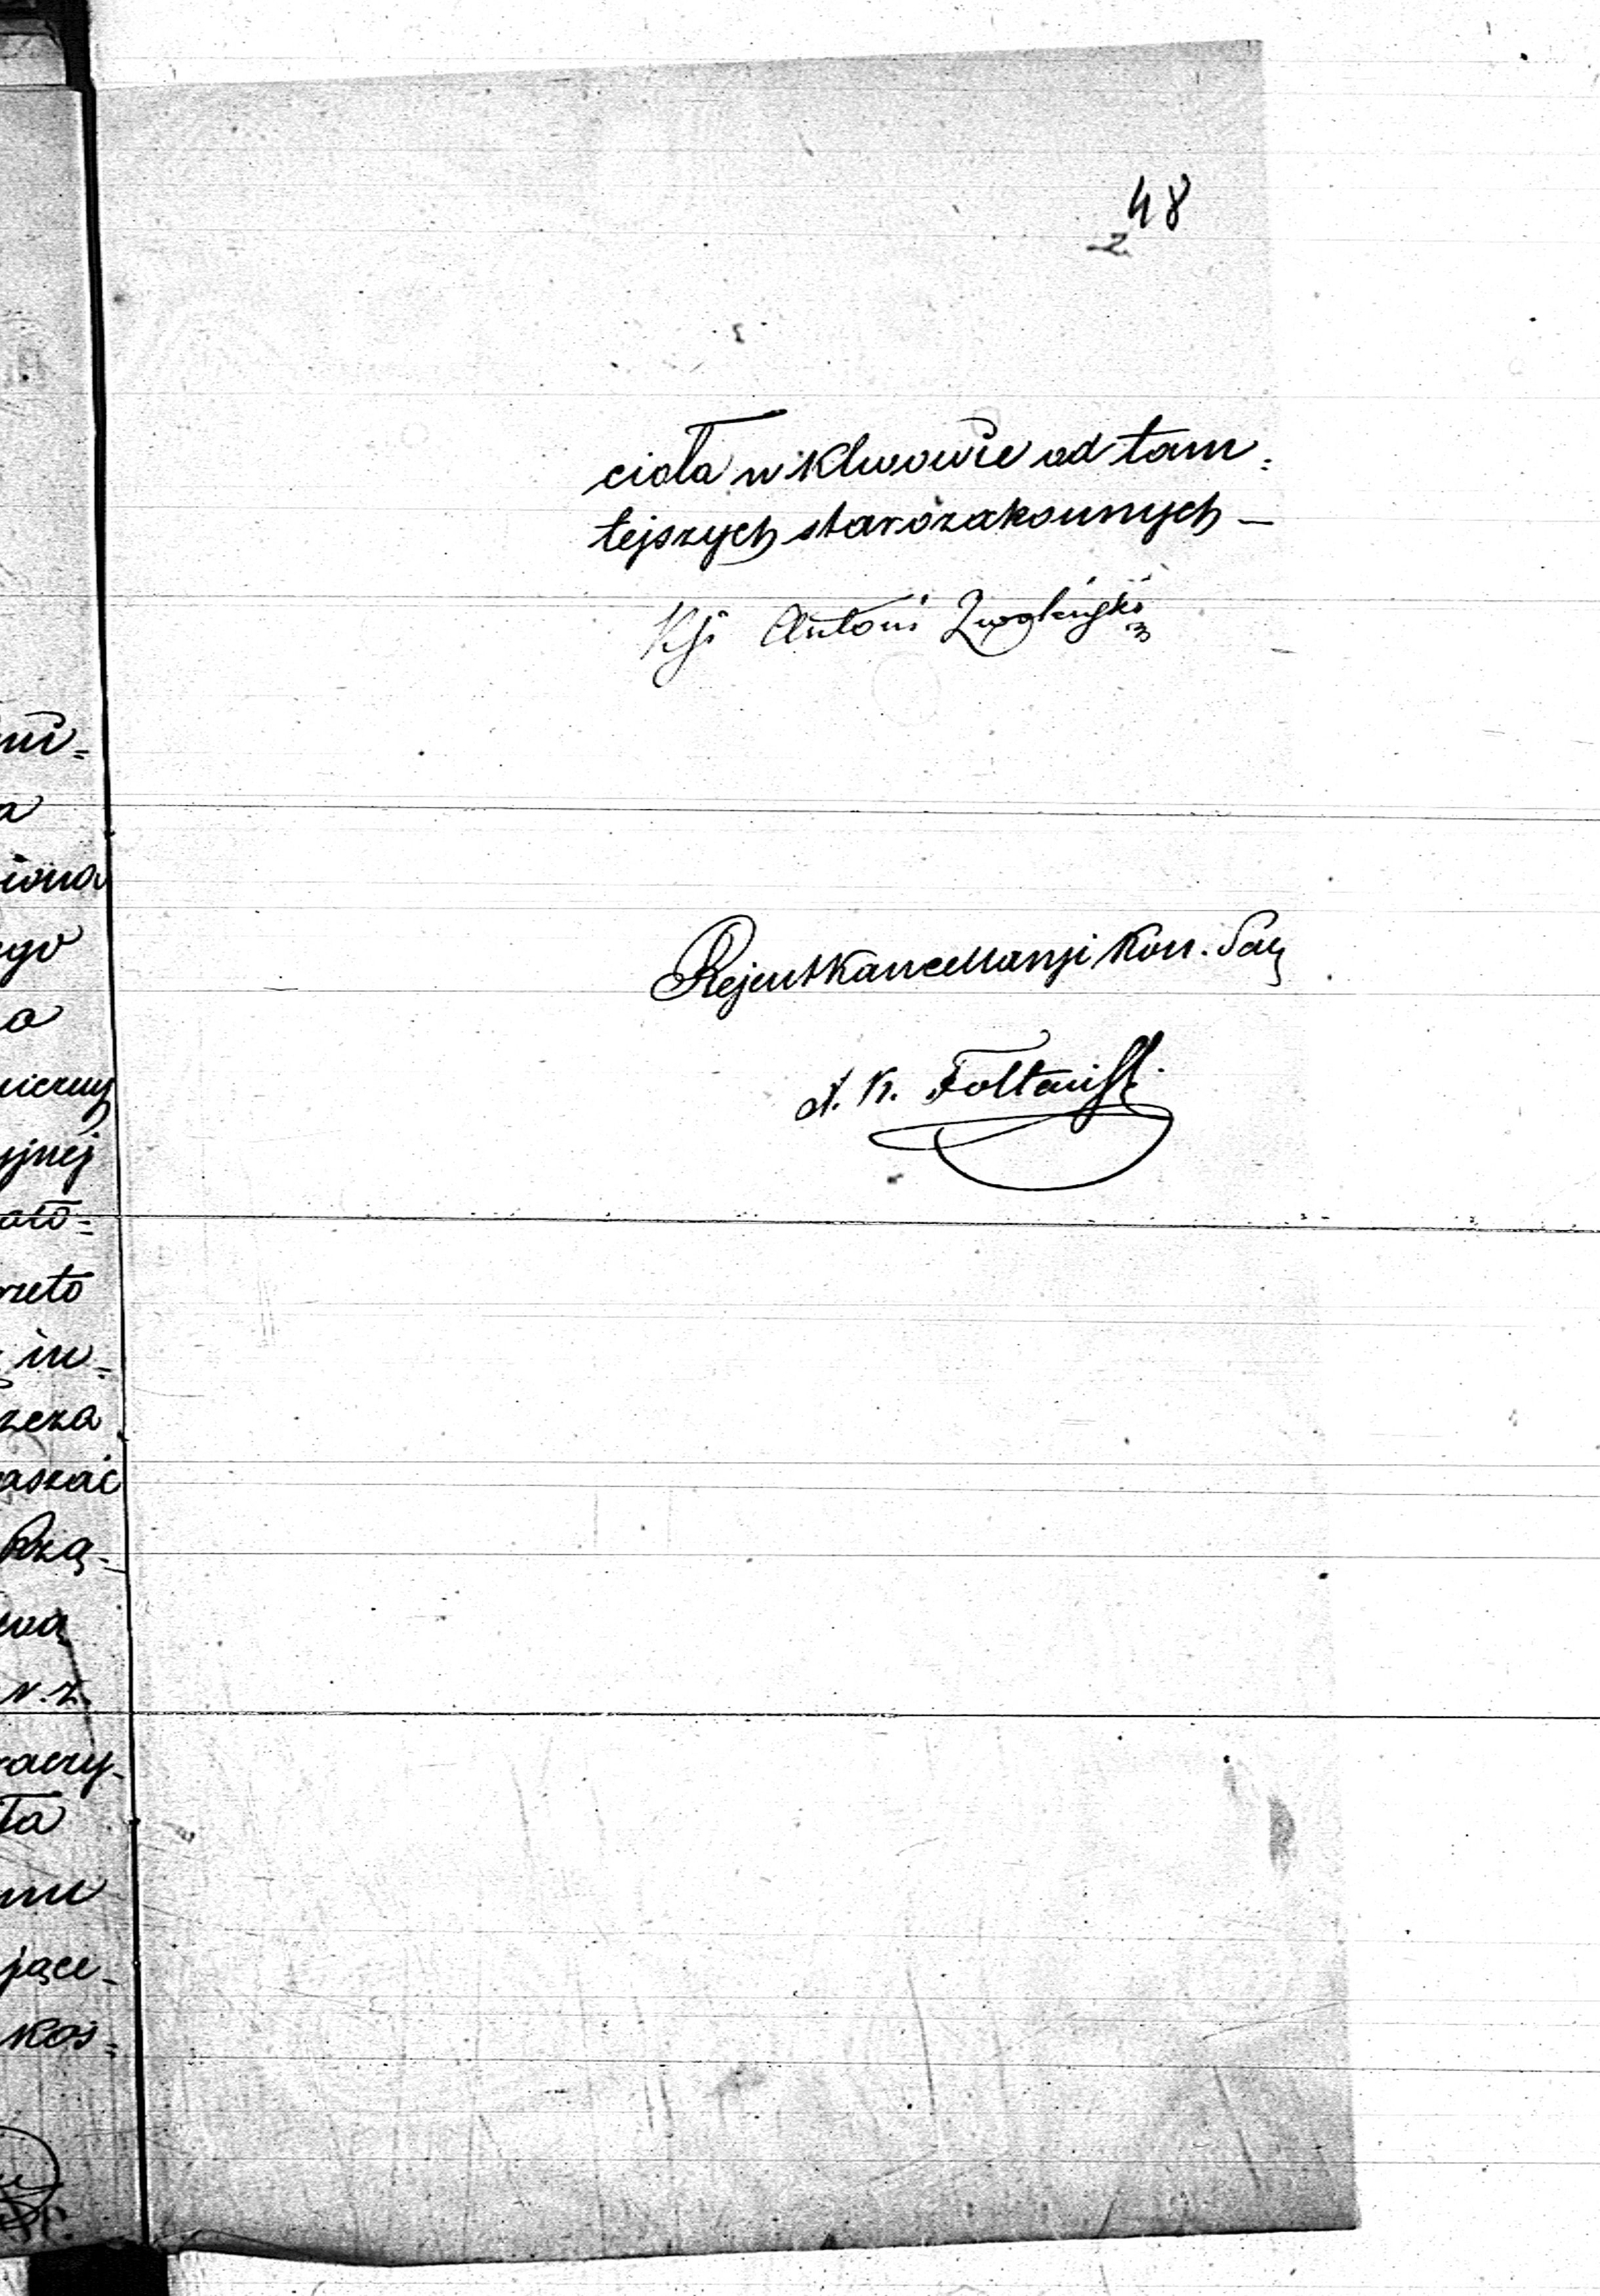 48
2
cioła w Klwowie od tam=
tejszych starozakonnych —
Xs. Antoni Zwoliński
Rejent Kancellaryi Kon. San
A. K. Foltański
ni=
a
iona
ego
a
yjnéj
ato=
rzeto
in=
zcza
aszać
Rzą=
wa
N. Z.
raczy=
ła
nie
jące=
koś=